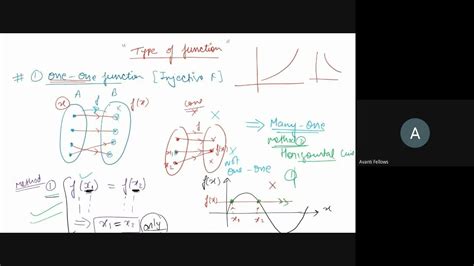 "Type of function"
# ① one-one function [Injective f]
A f B
x f(x)
⇒ Many-one
Method ②
Horizontal
Not
one-one
Method ①
f(x₁) = f(x₂)
⇒ x₁ = x₂ only
f(x)
f(x)
x₁ x₂ x
A
Avanti Fellows